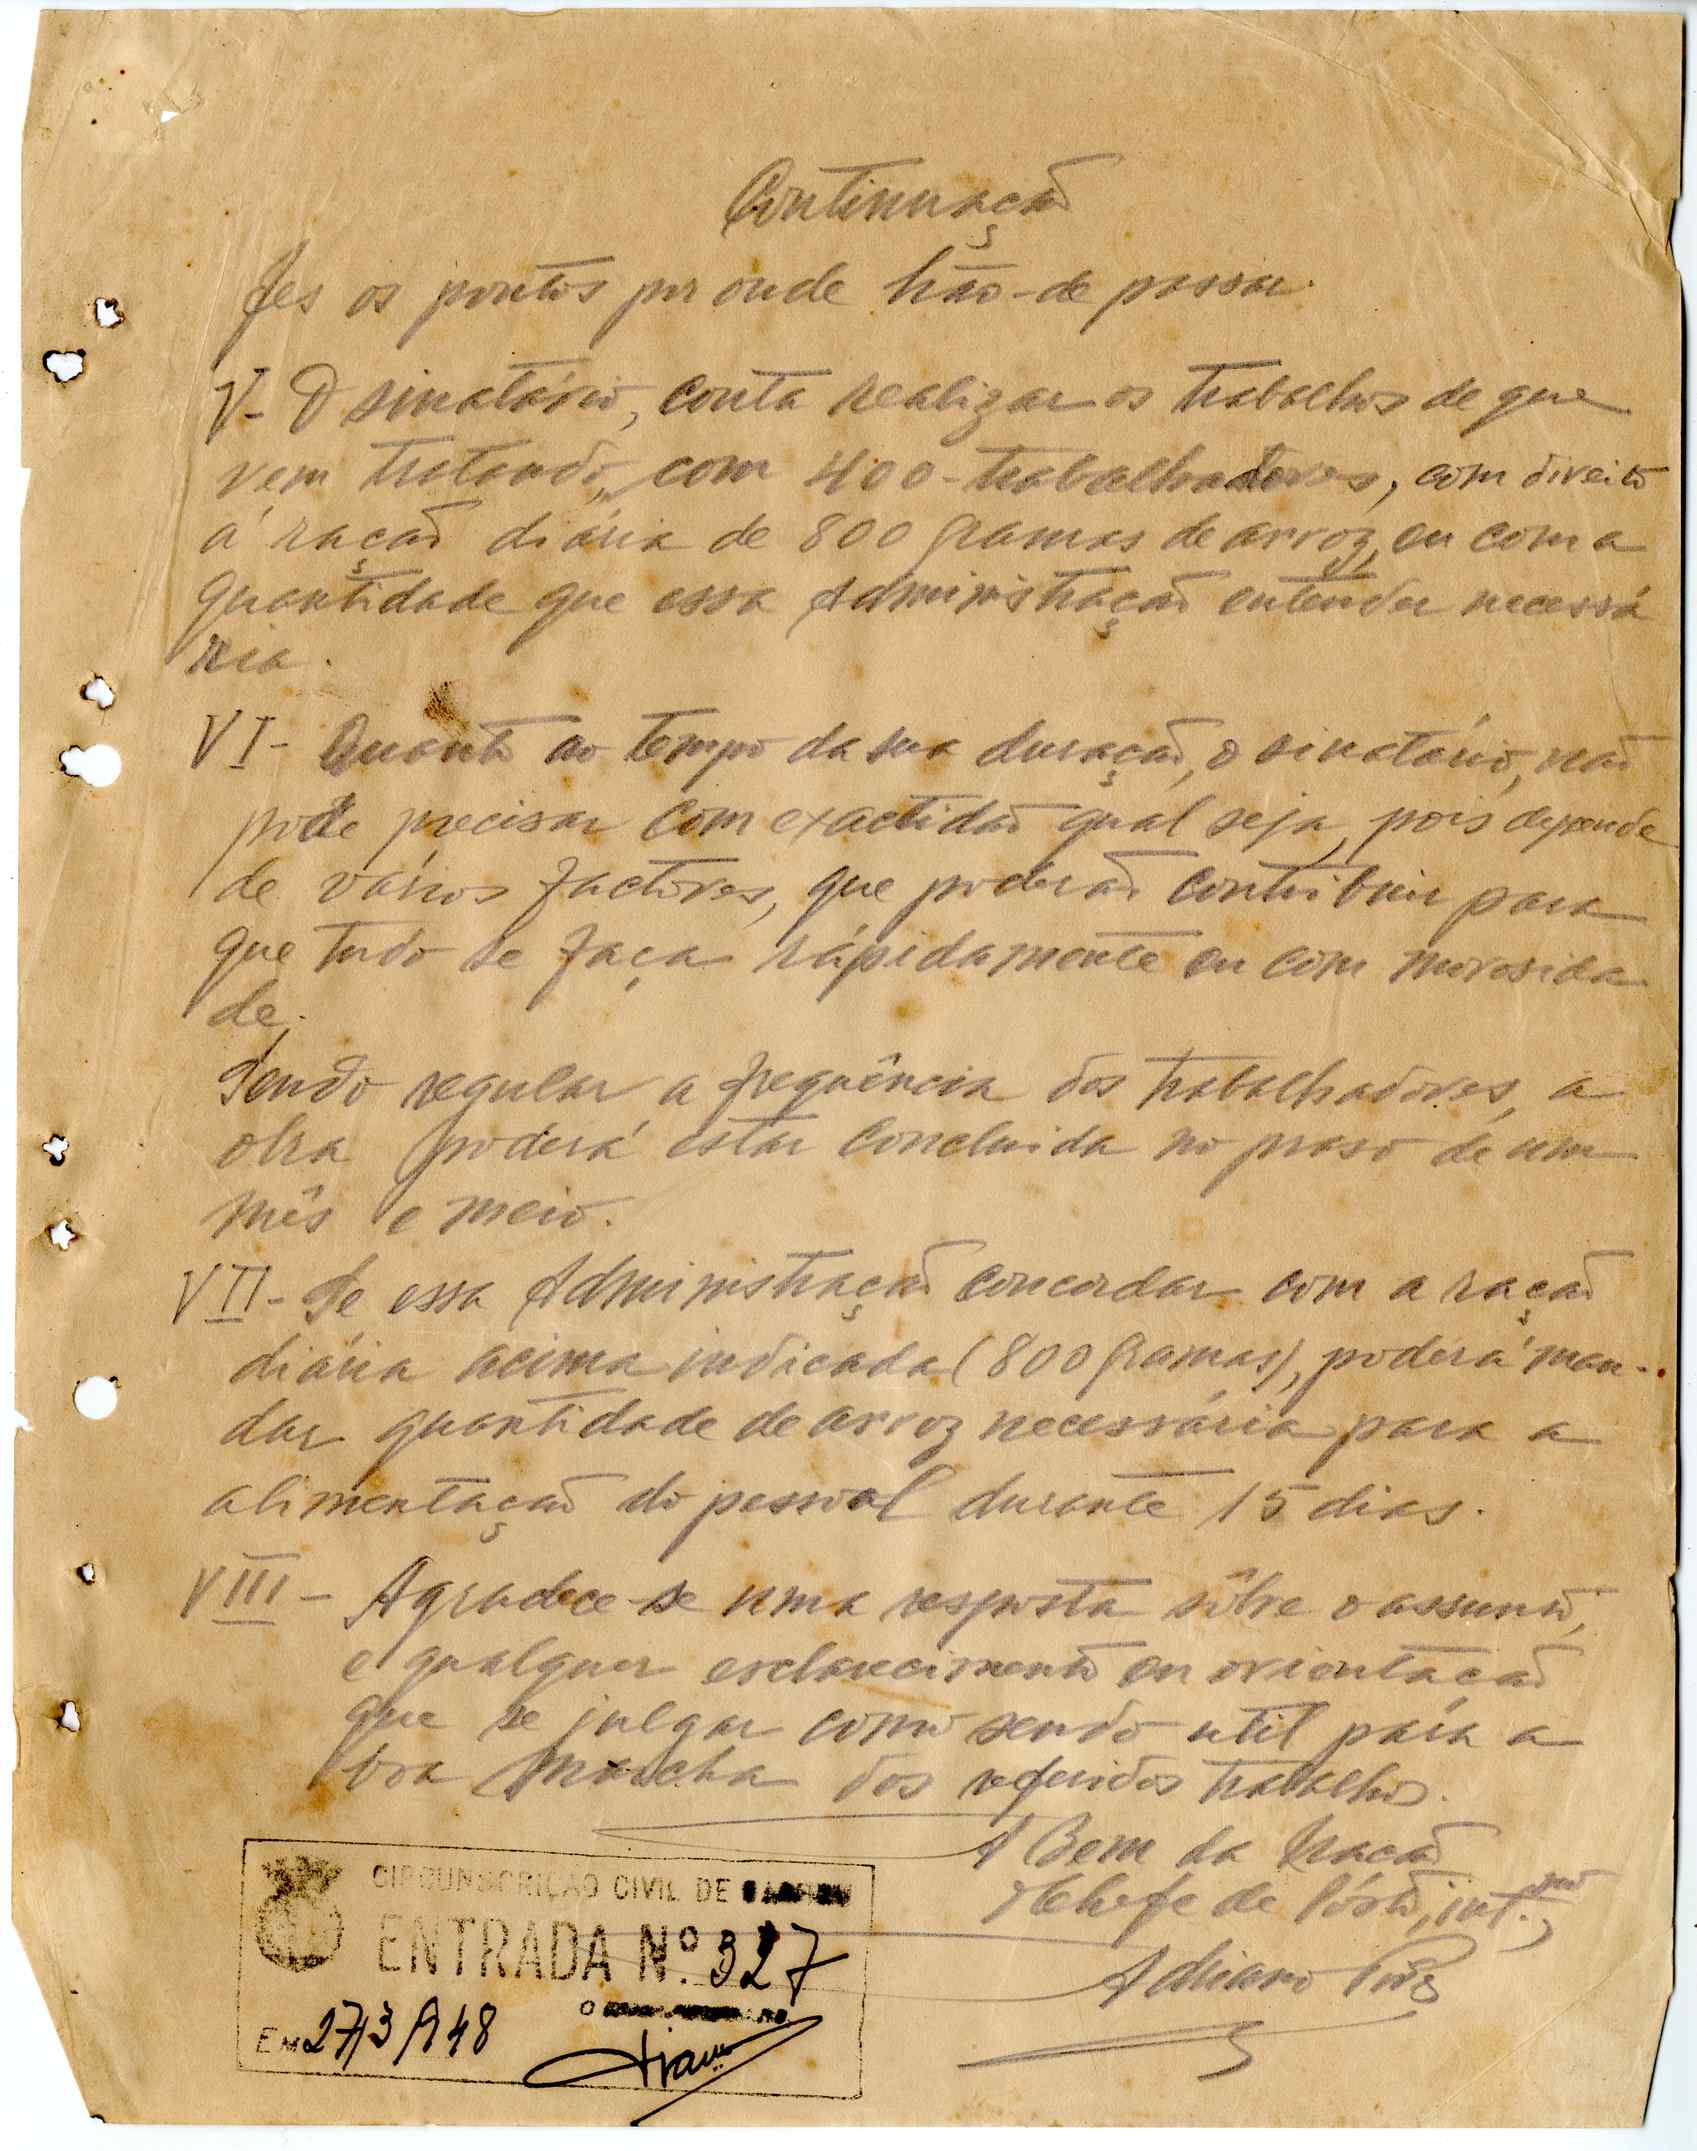 Continuação
fes os pontos por onde hão-de passar.
V- O sinatário, conta realizar os trabalhos de que
vem tratando, com 400-trabalhadores, com direito
á ração diária de 800 gramas de arroz, ou com a
quantidade que essa Administração entender necessá
ria.
VI- Quanto ao tempo da sua duração, o sinatário, não
pode precisar com exactidão qual seja, pois depende
de vários factores, que poderão contribuir para
que tudo se faça rápidamente ou com morosida
de.
Sendo regular a frequência dos trabalhadores, a
obra poderá estar concluida no praso de um
mês e meio.
VII- Se essa Administração concordar com a ração
diária acima indicada (800 gramas), poderá man-
dar quantidade de arroz necessária para a
alimentação do pessoal durante 15 dias.
VIII- Agradece-se uma resposta sôbre o assunto,
e qualquer esclarecimento ou orientação
que se julgar como sendo util para a
boa marcha dos referidos trabalhos.
A Bem da Nação
O Chefe de Pôsto, int.no,
Adriano Pires
CIRCUNSCRIÇÃO CIVIL DE
ENTRADA N.º 327
O
EM 27/3/948